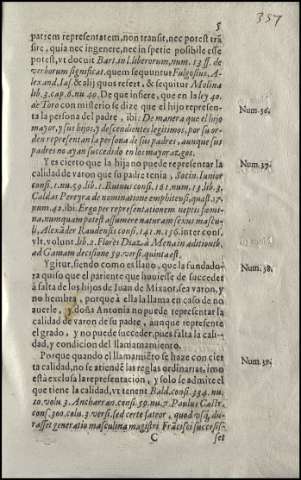 5
357
patrem repræsentatem, non transit, nec potest trã
sire, quia nec in genere, nec in spetie posibile esse
potest, vt docuit Bart. in l. liberorum, num. 13. ff. de
verborum significat. quem sequuntur Fulgosius, A-
lexand. Ias. & alij quos refert, & sequitur Molina
lib. 3. cap. 6. nu. 40. De que infiere, que en la ley 40.
de Toro con misterio se dize que el hijo represen-
ta la persona del padre, ibi: De manera que el hijo
mayor, y sus hijos, y descendientes legitimos, por su or-
den representan la persona de sus padres, aunque sus
padres no ayan succedido en los mayorazgos.
Num. 36.
Y es cierto que la hija no puede representar la
calidad de varon que su padre tenia, Socin. Iunior
consi. 1. nu. 59. lib. 1. Butuus consi. 161. num. 13. lib. 3.
Caldas Pereyra de nominatione emphiteusi, quæst. 17.
num. 42. ibi: Ergo per representationem neptis fœmi-
na, numquam potest assumere naturam sexus mascu-
li, Alexãder Raudensis consi. 141. n. 136. inter cons.
vlt. volunt. lib. 2. Flores Diaz à Mena in additionib.
ad Gamam decisione 39. vers. quinta est.
Num. 37.
Ygitur, siendo como es llano, que la fundado-
ra quiso que el pariente que huuiesse de succeder
à falta de los hijos de Iuan de Mixaor, sea varon, y
no hembra, porque à ella la llama en caso de no
auerle, y doña Antonia no puede representar la
calidad de varon de su padre, aunque represente
el grado, y no puede succeder, pues falta la cali-
dad, y condicion del llamamiento.
Num. 38.
Porque quando el llamamiẽto se haze con cier
ta calidad, no se atiendẽ las reglas ordinarias, imo
està exclusa la representacion, y solo se admite el
que tiene la calidad, vt tenent Bald. consi. 334. nu.
10. volu. 3. Ancharan. consi. 59. nu. 7. Paulus Castr.
consi. 300. colu. 3. versi. sed certe fateor, quod vosq; ibi-
rasset generatio masculina magistri Frãcisci successis-
Num. 39.
C
set